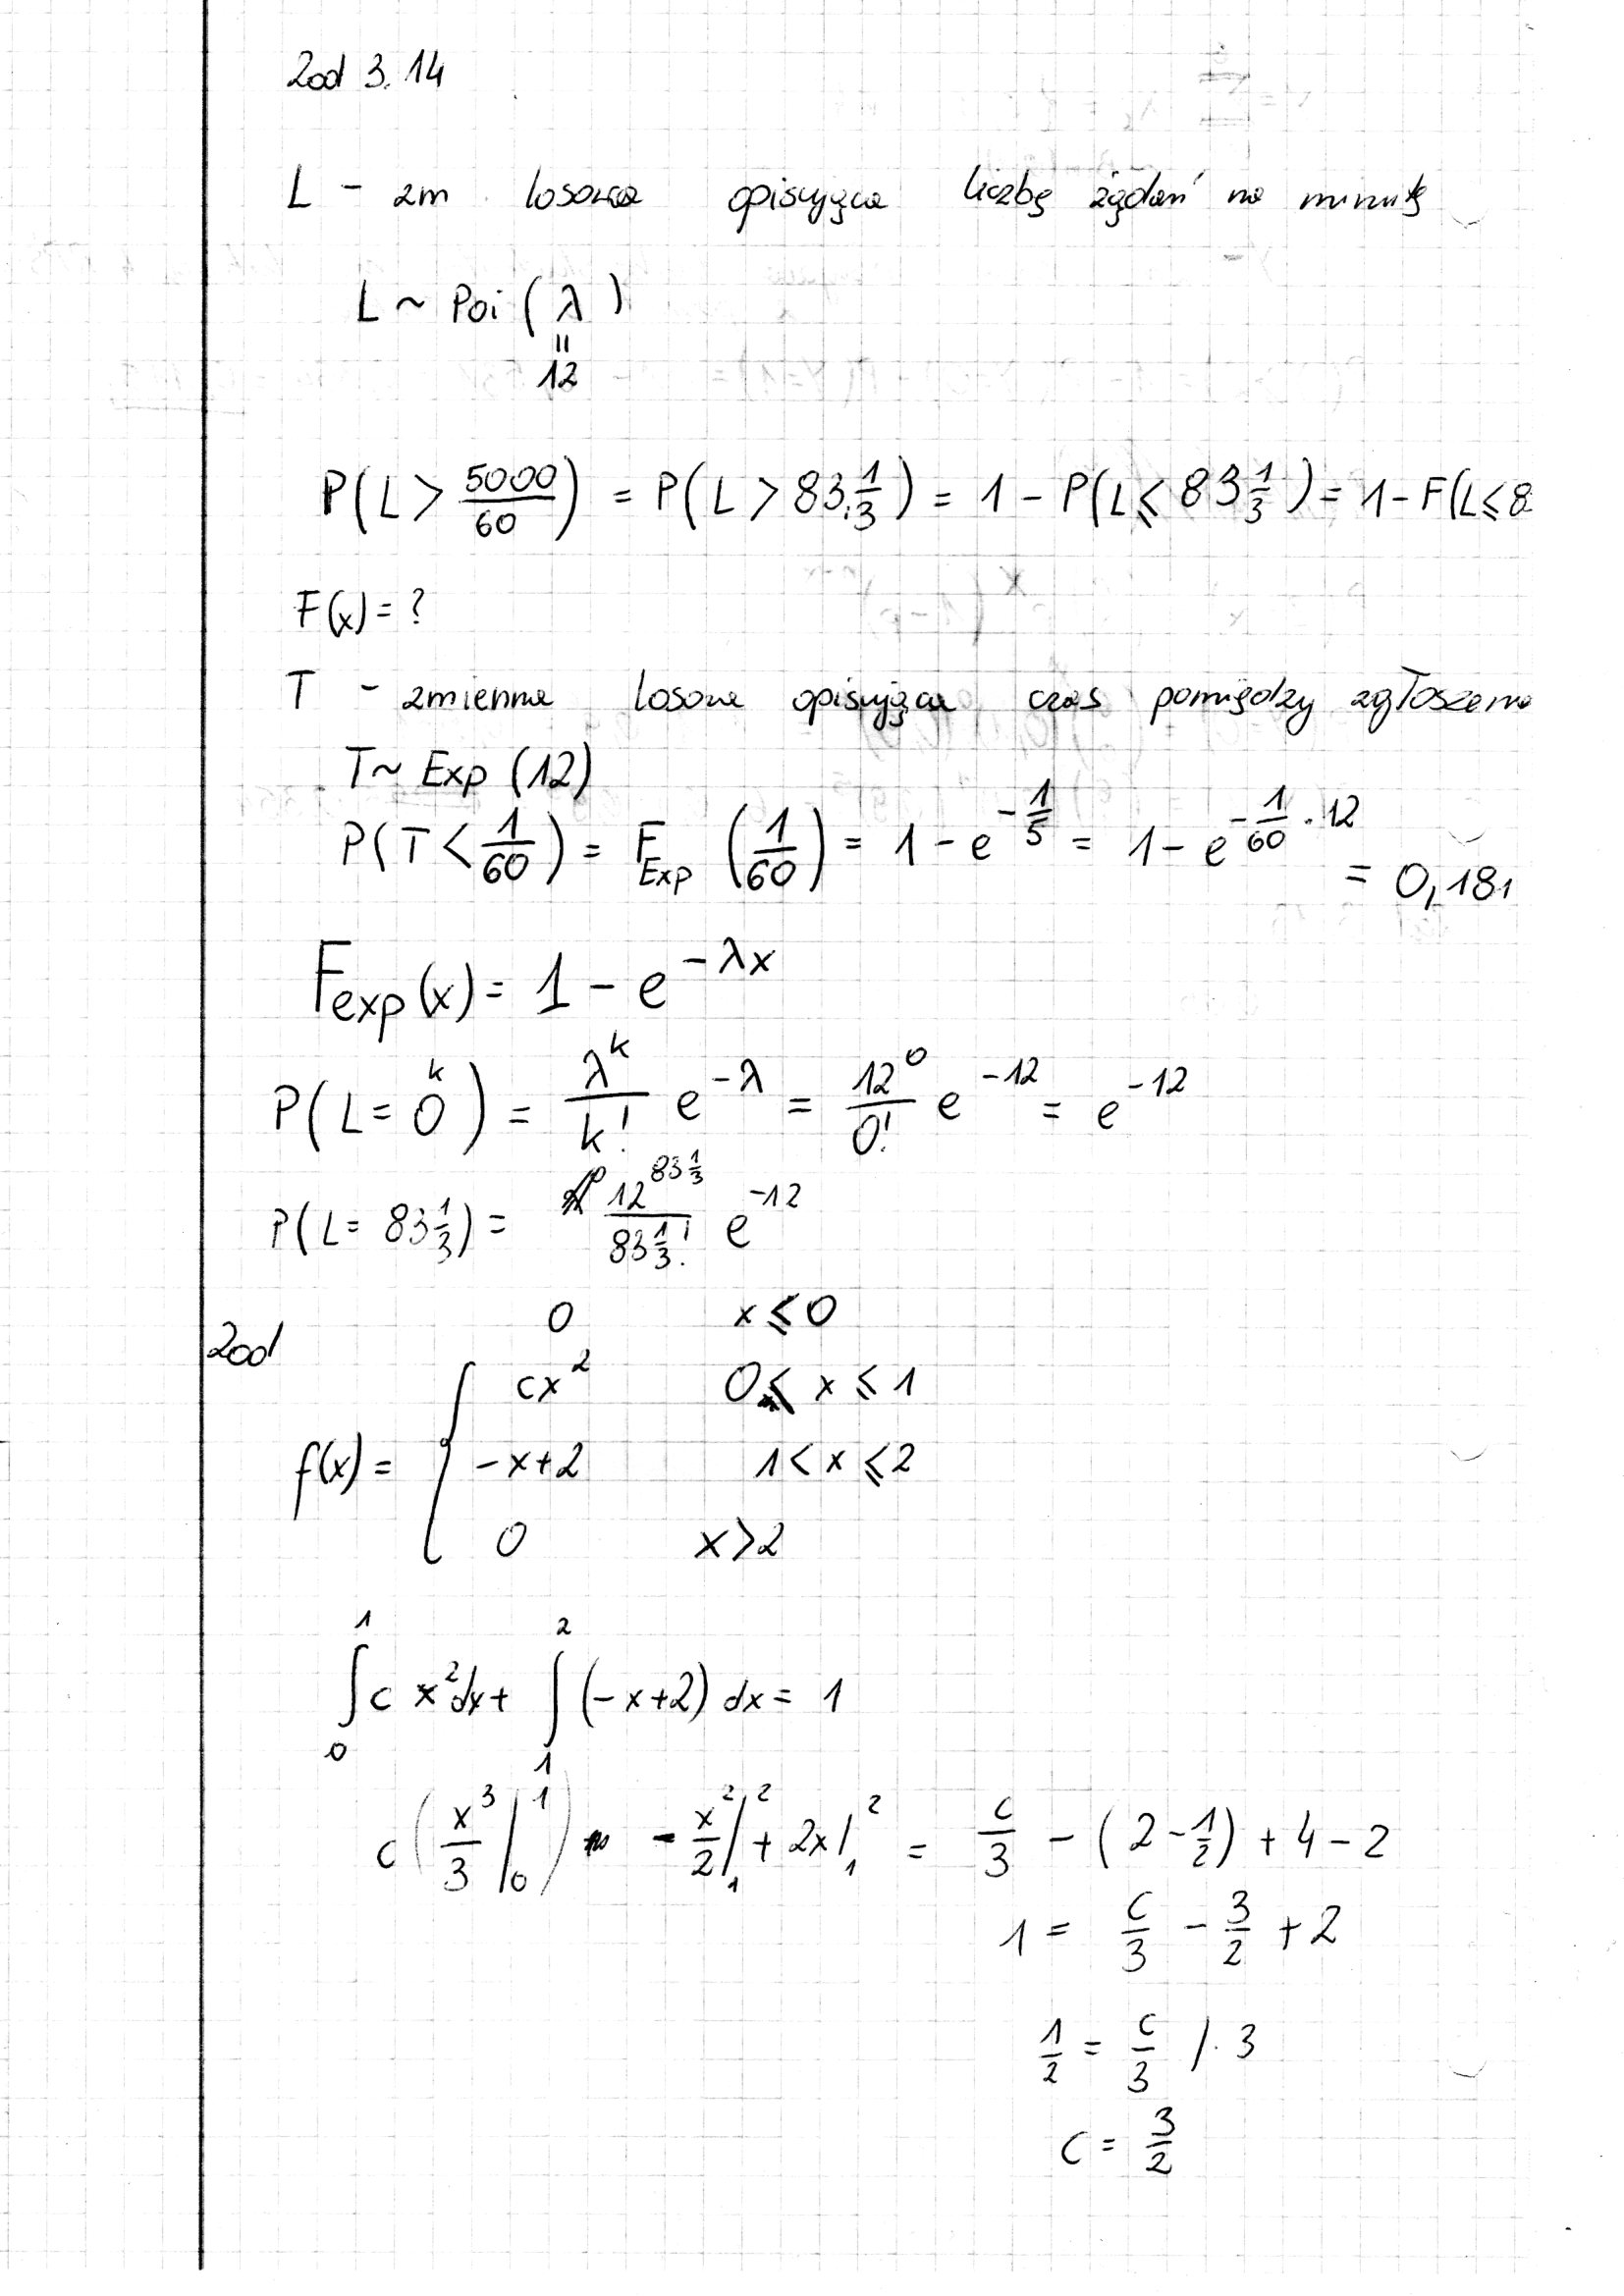 Zad 3.14
L - zm losowa opisująca liczbę żądań na minutę
L ~ Poi ( λ )
=
12
P(L > 5000/60) = P(L > 83 1/3) = 1 - P(L ≤ 83 1/3) = 1 - F(L ≤ 8
F(x) = ?
T - zmienna losowa opisująca czas pomiędzy zgłoszenia
T ~ Exp (12)
P(T < 1/60) = F_Exp (1/60) = 1 - e^(-1/5) = 1 - e^(-1/60 · 12)
= 0,181
F_exp(x) = 1 - e^(-λx)
k
P(L = 0) = λ^k/k! e^(-λ) = 12^0/0! e^(-12) = e^(-12)
P(L = 83 1/3) = 12^(83 1/3)/83 1/3! e^(-12)
0 x ≤ 0
Zad
cx² 0 ≤ x ≤ 1
f(x) = { -x+2 1 < x ≤ 2
0 x > 2
∫₀¹ c x² dx + ∫₁² (-x+2) dx = 1
c (x³/3 |₀¹) - x²/2 |₁² + 2x |₁² = c/3 - (2 - 1/2) + 4 - 2
1 = c/3 - 3/2 + 2
1/2 = c/3 / · 3
c = 3/2